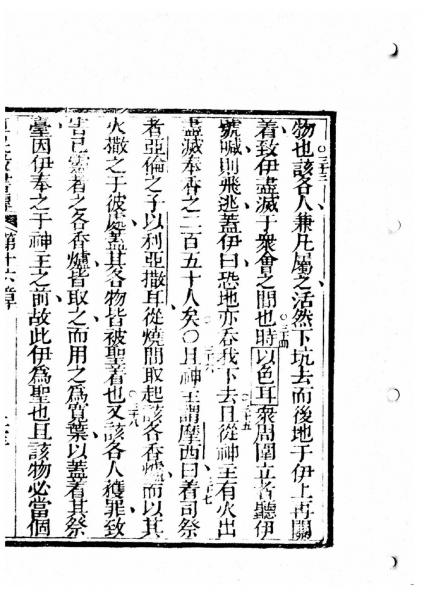 物也該各人兼凡屬之活然下坑去而後地于伊上再關
着致伊盡滅于衆會之間也時以色耳衆周圍立者聽伊
號喊則飛逃蓋伊曰恐地亦吞我下去且從神主有火出
盡滅奉香之二百五十人矣〇且神主謂摩西曰着司祭
者亞倫之子以利亞撒耳從燒間取起該各香爐而以其
火撒之于彼處蓋其各物皆被聖着也又該各人獲罪致
害己靈者之各香爐皆取之而用之爲寬葉以蓋着其祭
臺因伊奉之于神主之前故此伊爲聖也且該物必當個
第十六章